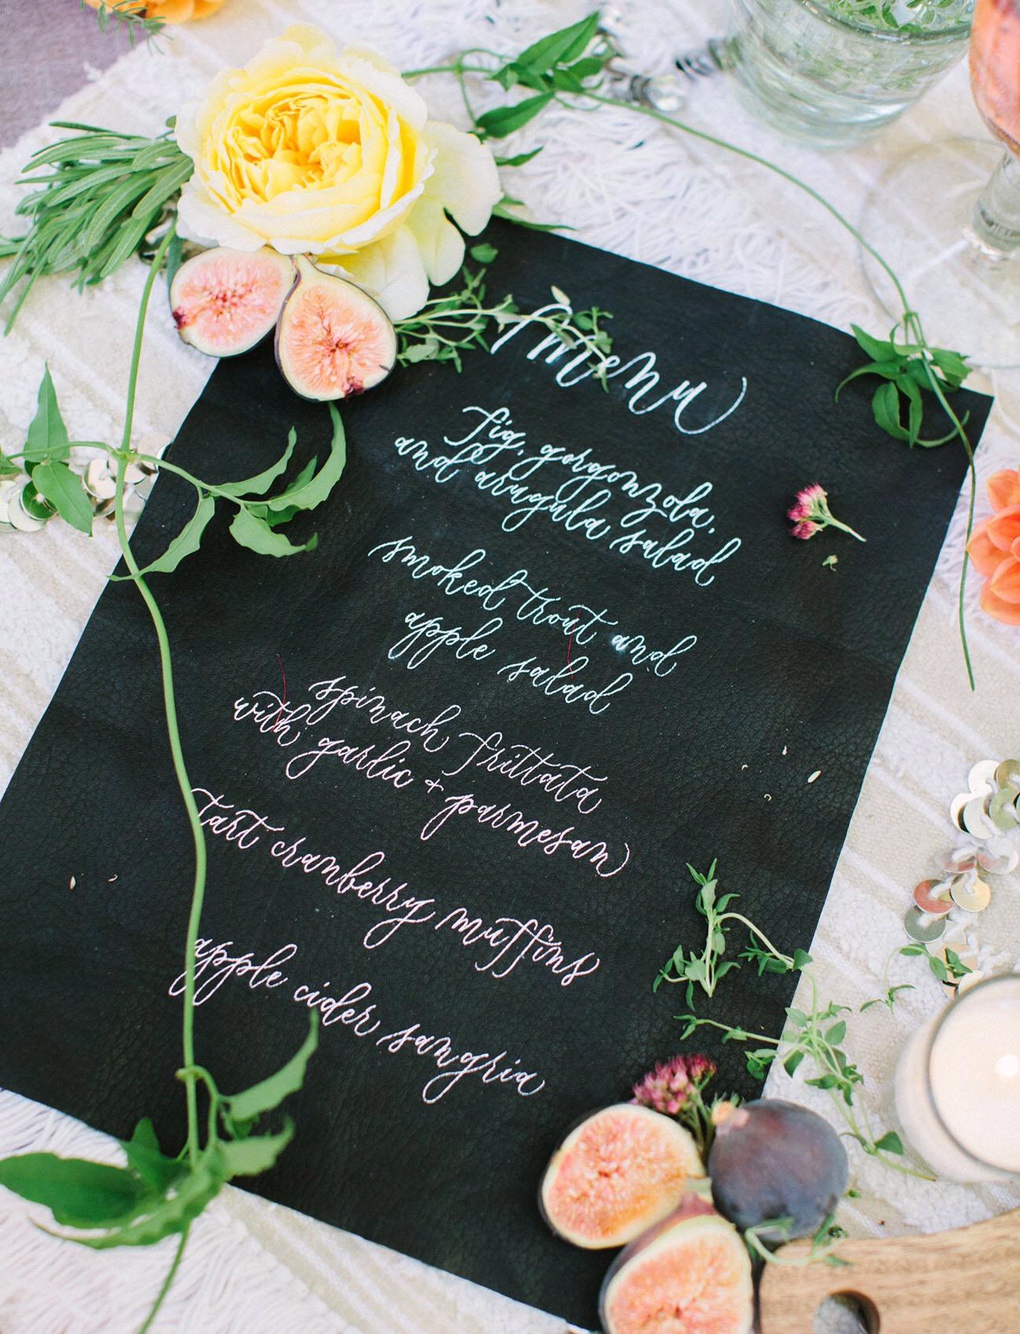 menu
fig, gorgonzola,
and arugula salad
smoked trout and
apple salad
spinach frittata
with garlic + parmesan
tart cranberry muffins
apple cider sangria